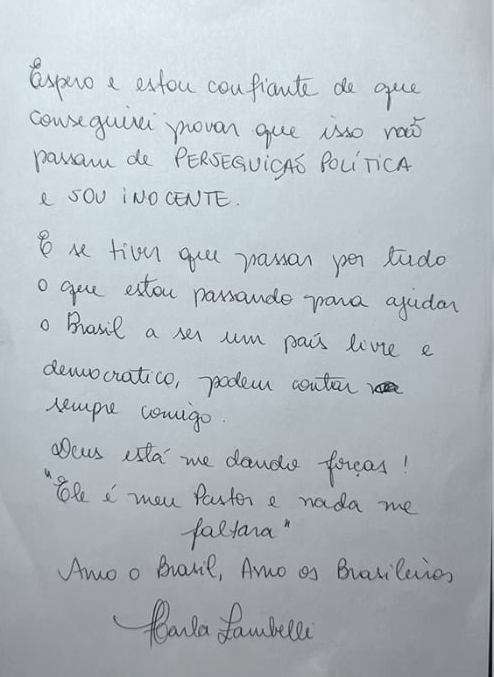 Espero e estou confiante de que
conseguirei provar que isso não
passam de PERSEGUIÇAÕ POLÍTICA
e SOU iNOCENTE.
E se tiver que passar por tudo
o que estou passando para ajudar
o Brasil a ser um país livre e
democratico, podem contar
sempre comigo.
Deus está me dando forças!
"Ele é meu Pastor e nada me
faltara"
Amo o Brasil, Amo os Brasileiros
Carla Zambelli